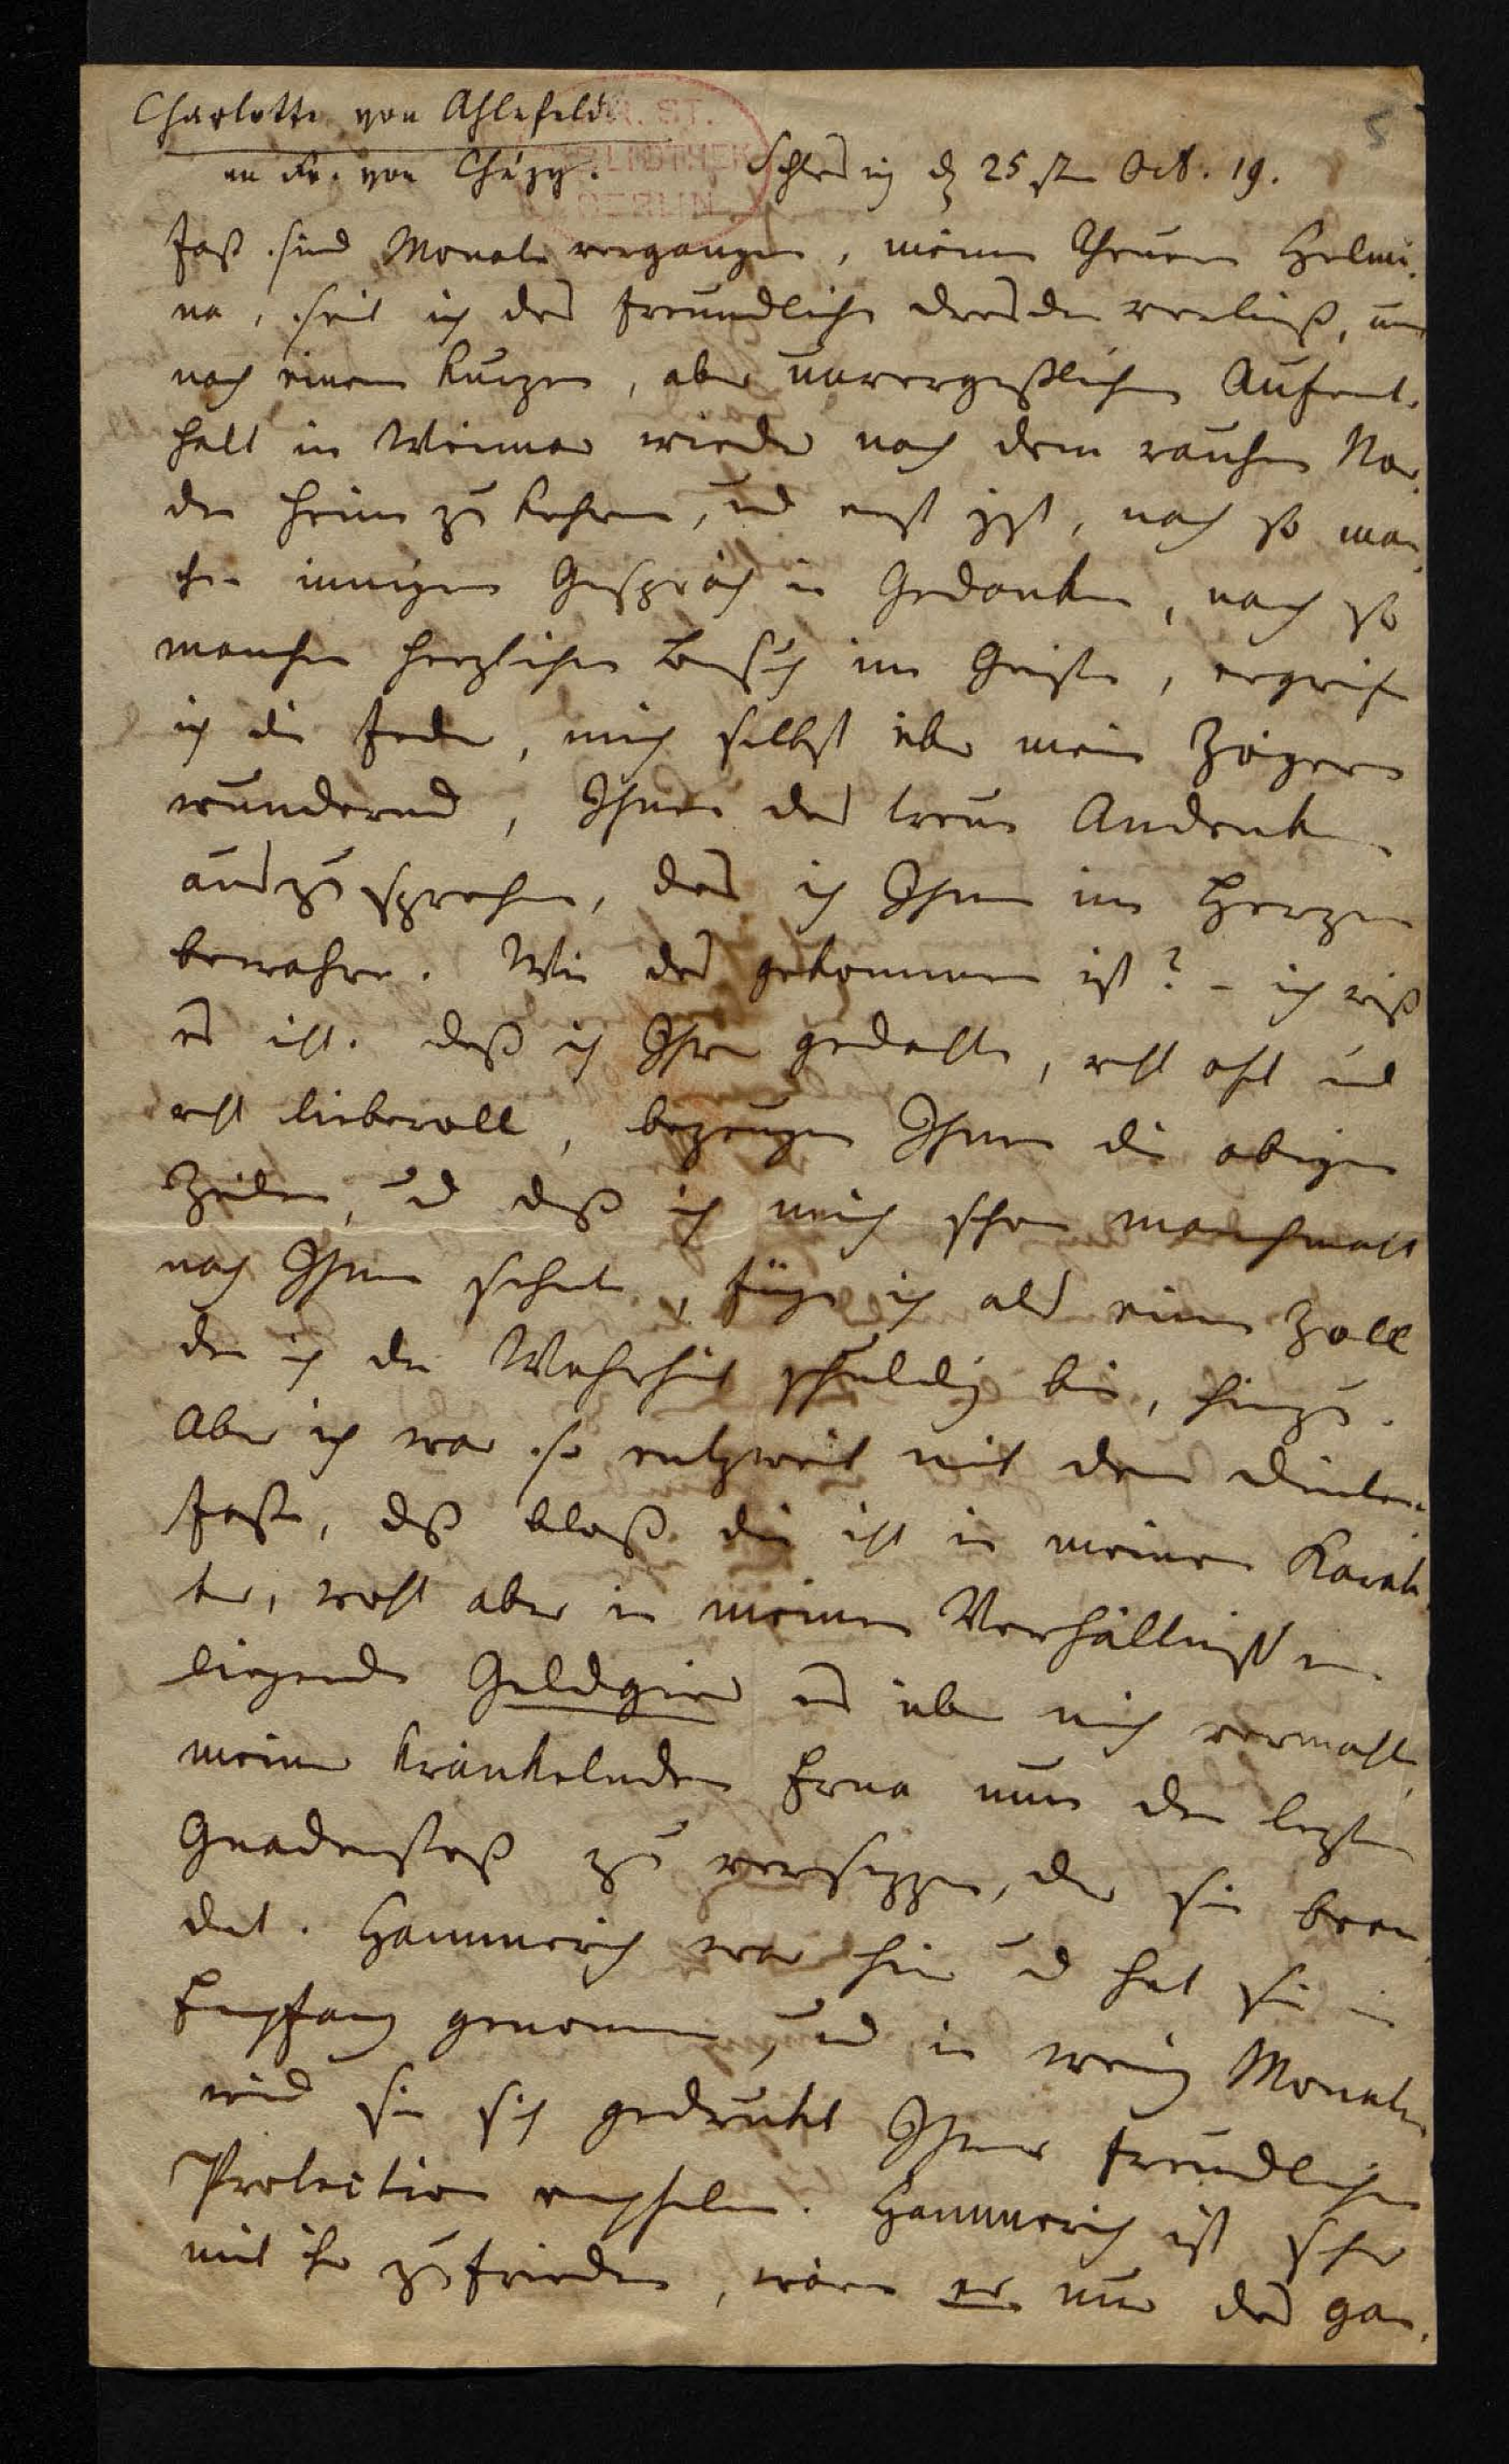 Charlotte von Ahlefeld
an Fr. von Chézy.
5
Schleswig d 25 sten Oct. 19.
Fast sind Monate vergangen, meine theure Helmi-
na, seit ich das freundliche Dresden verließ, um
nach einem kurzen, aber unvergeßlichen Aufent-
halt in Weimar wieder nach dem rauhen Nor-
den heim zu kehren, und erst jzt, nach so man-
chen innigen Gespräch in Gedanken, nach so
manchen herzlichen Besuch im Geiste, ergreife
ich die Feder, mich selbst über mein Zögern
wundernd, Ihnen das treue Andenken
auszusprechen, das ich Ihnen im Herzen
bewahre. Wie das gekommen ist? – ich weiß
es nicht. Daß ich Ihrer gedachte, recht oft und
recht liebevoll, bezeugen Ihnen die obigen
Zeilen, und daß ich mich schon manchmal
nach Ihnen sehnte, füge ich als einen Zoll
den ich der Wahrheit schuldig bin, hinzu.
Aber ich war so entzweit mit dem Dinten-
fasse, daß blos die nicht in meinem Karak-
ter, wohl aber in meinen Verhältnissen
liegende Geldgier es über mich vermochte,
meiner kränkelnden Erna nun den lezten
Gnadenstoß zu versezzen, der sie been-
det. Hammerich war hier und hat sie in
Empfang genommen, und in wenig Monaten
wird sie sich gedruckt Ihrer freundlichen
Protection empfelen. Hammerich ist sehr
mit ihr zufrieden, wäre er nur das gan-